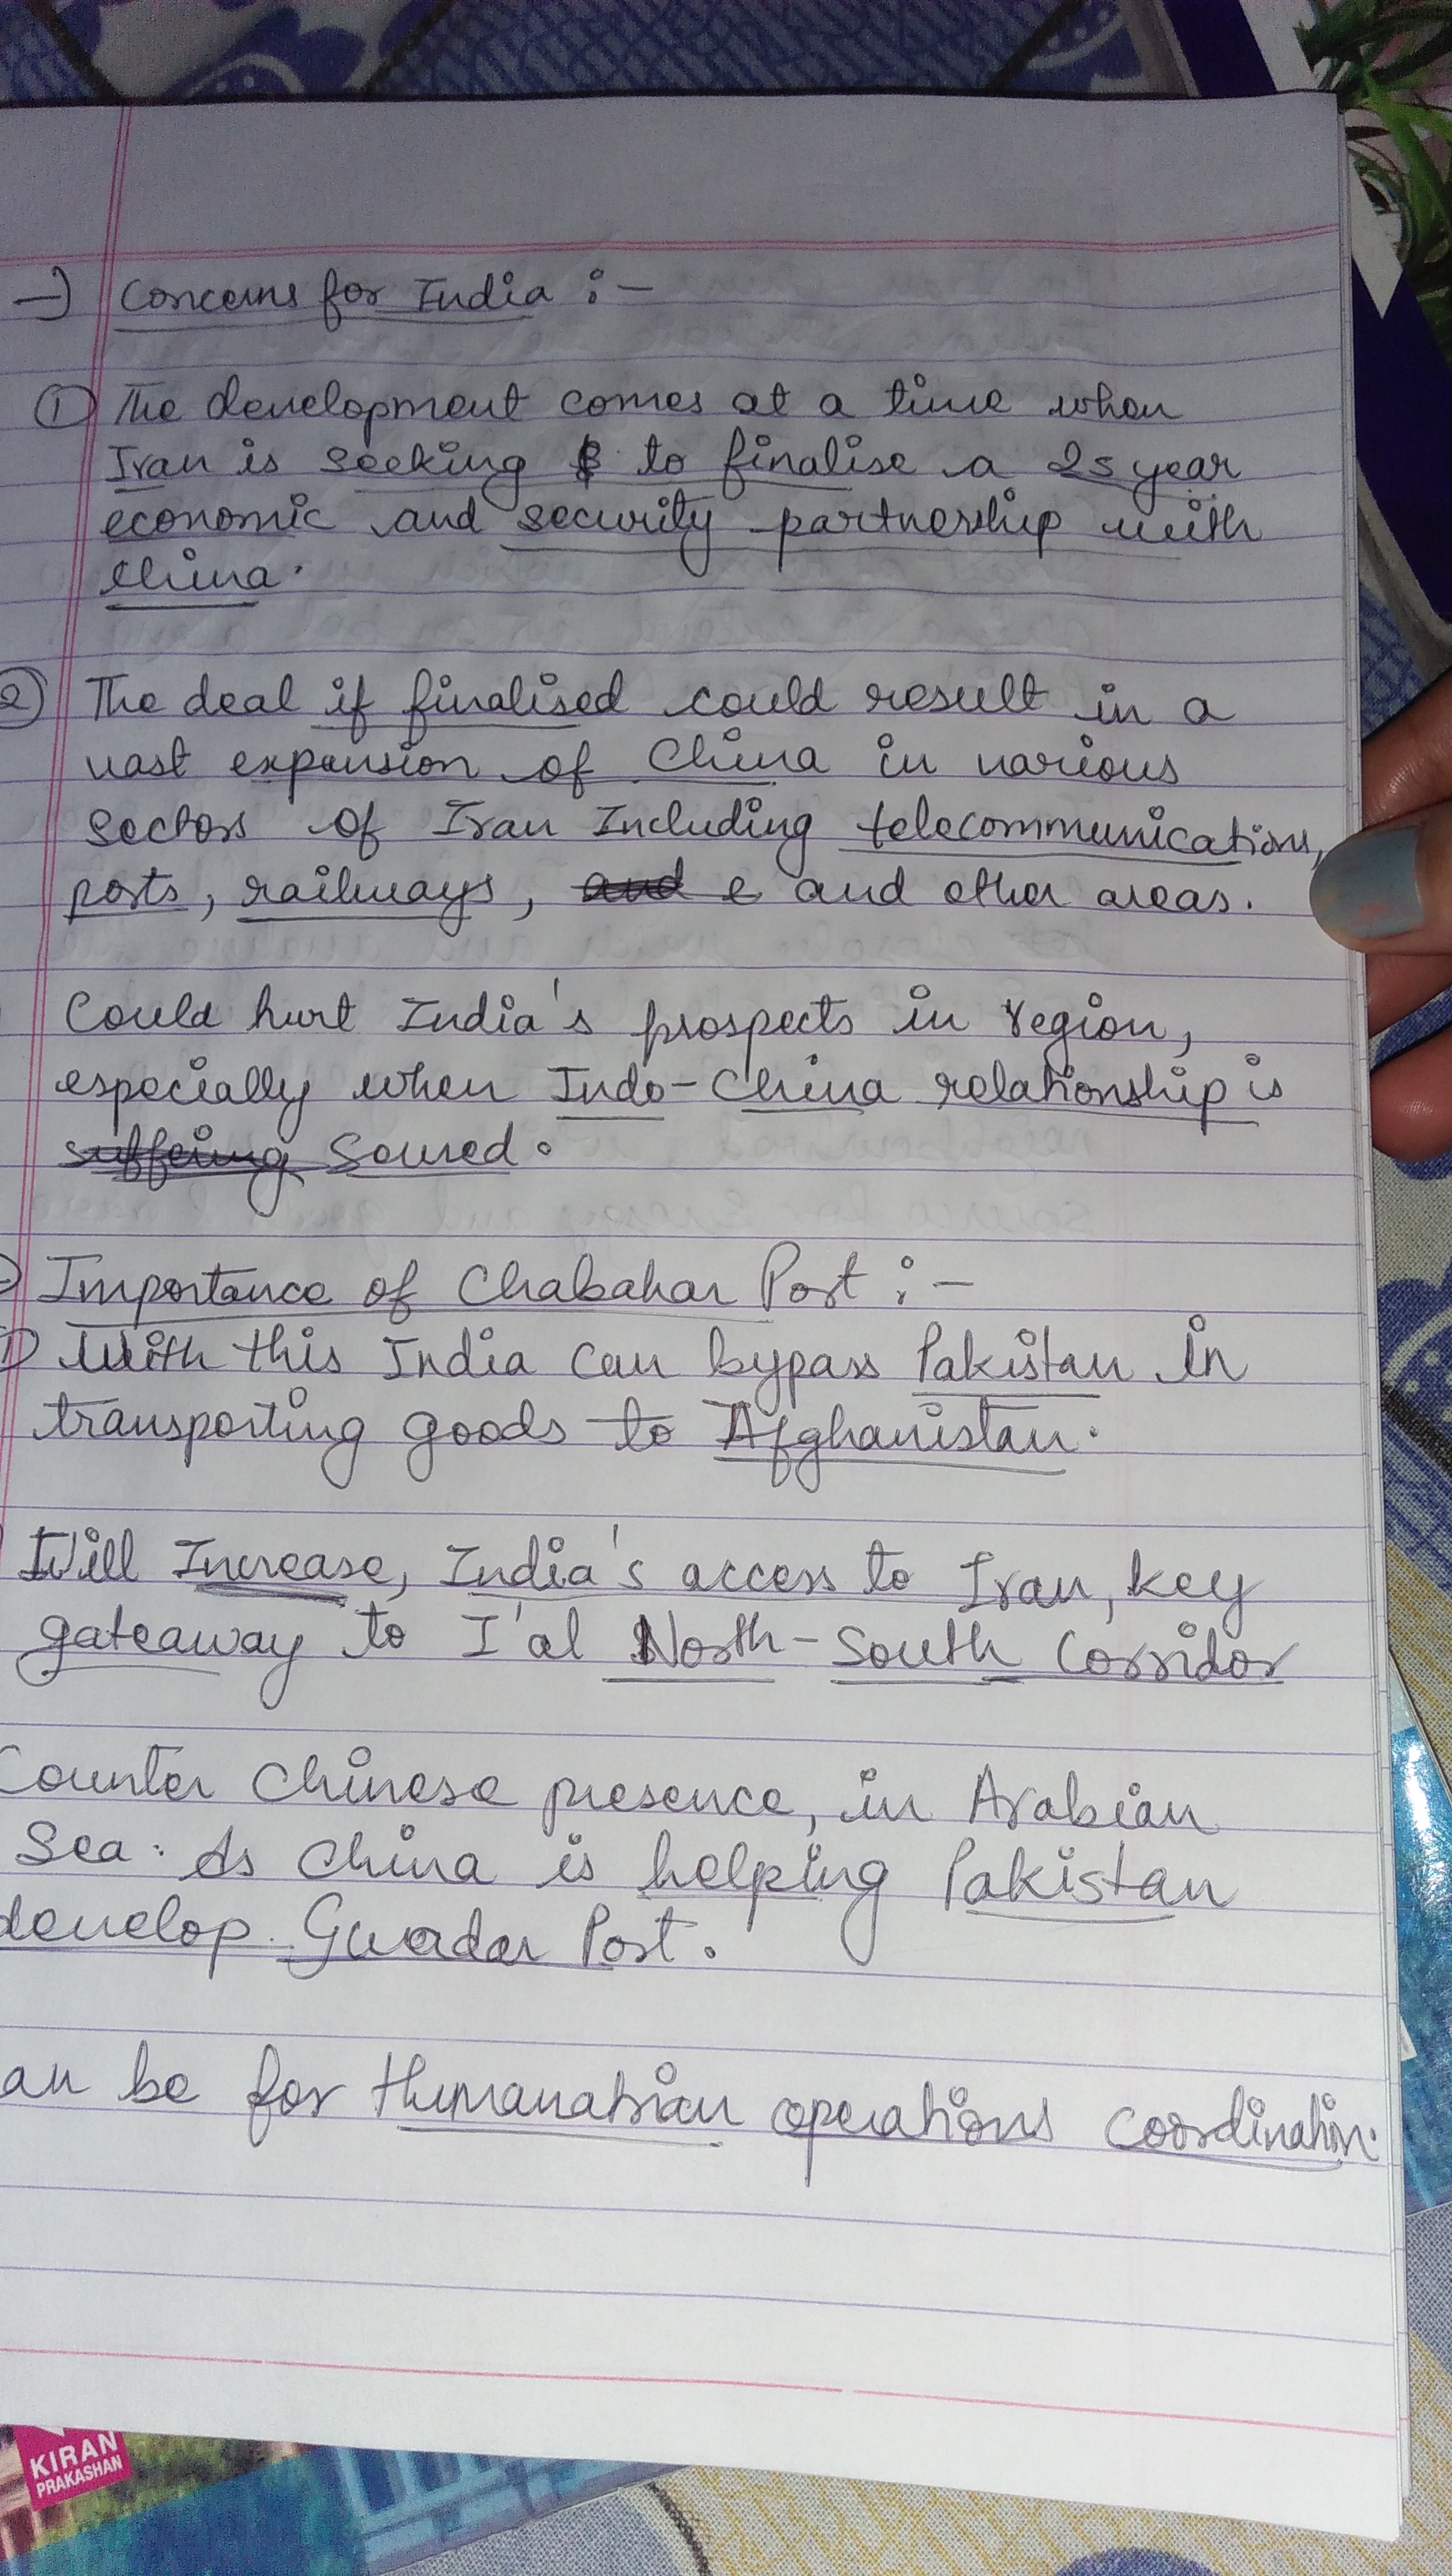 → Concerns for India :-
① The development comes at a time when
Iran is seeking to finalise a 25 year
economic and security partnership with
China.
② The deal if finalised could result in a
vast expansion of China in various
sectors of Iran Including telecommunications,
ports, railways, and e and other areas.
Could hurt India's prospects in region,
especially when Indo-China relationship is
suffering soured.
Importance of Chabahar Port :-
① With this India can bypass Pakistan in
transporting goods to Afghanistan.
Will Increase, India's access to Iran, key
gateaway to I'al North-South Corridor
Counter Chinese presence, in Arabian
Sea. As China is helping Pakistan
develop Gwadar Port.
an be for Humanatrian operations coordination.
KIRAN
PRAKASHAN